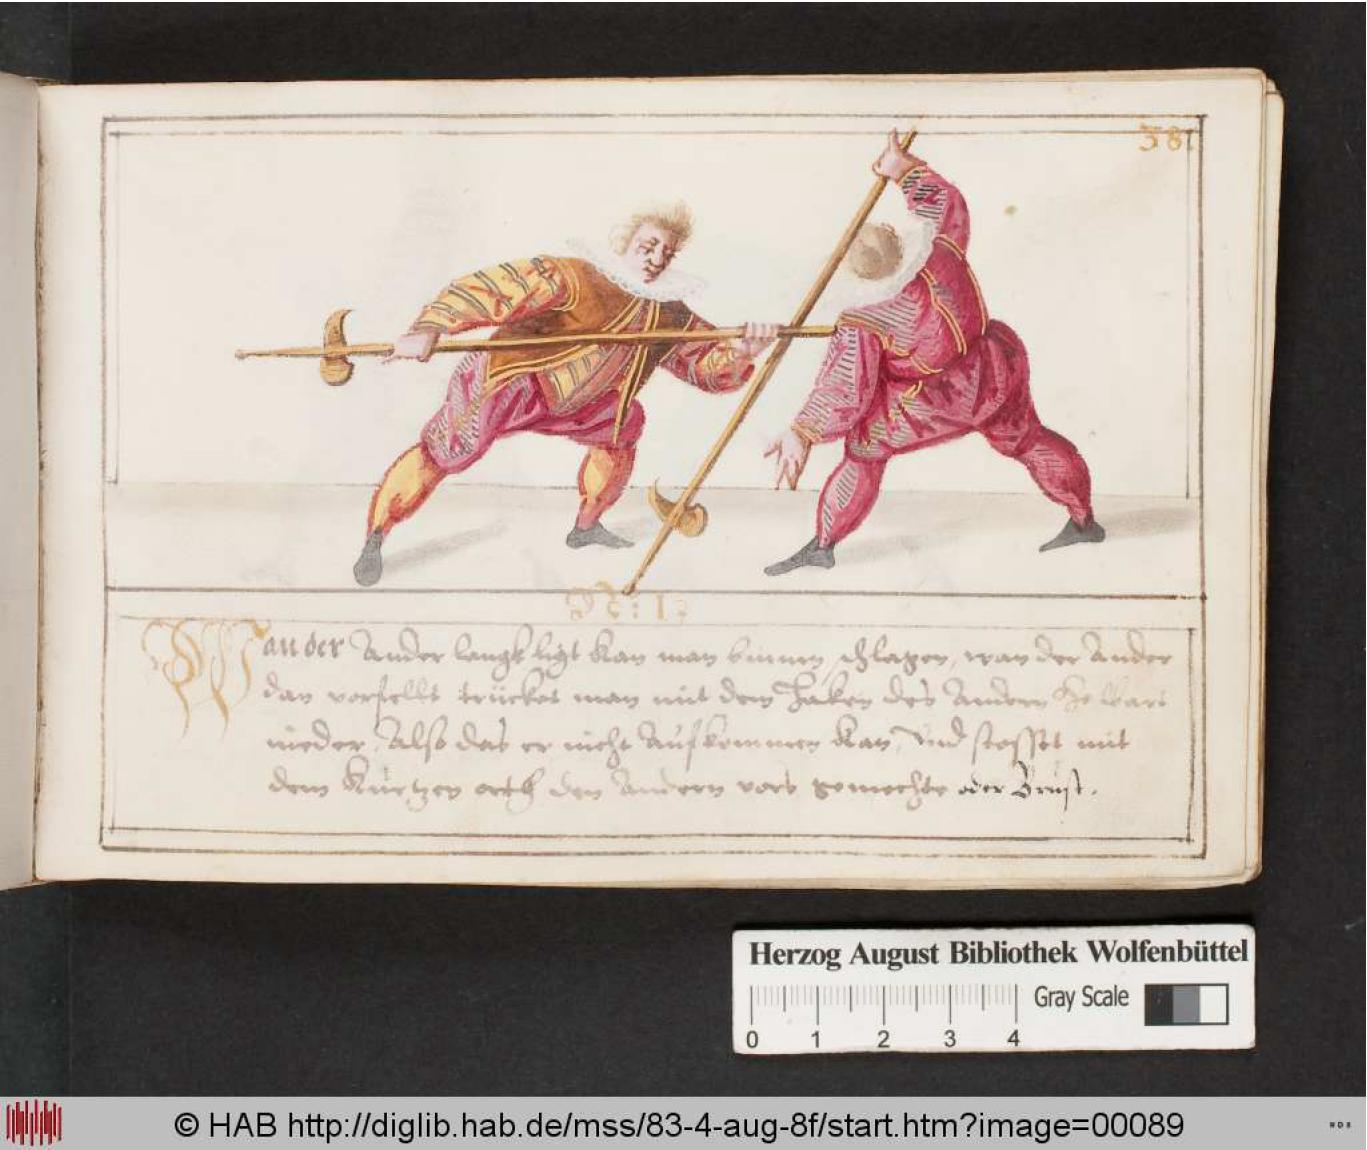 38.
N: 1
Wan der Ander langk ligt kan man binnen, schlagen, wan der Ander
dan vorfellt trücket man mit dem Haken des Andern Helbart
nieder, Also das er nicht Aufkommen kan, und stosset mit
dem kurtzen orth den Andern vors gemechte oder Brust.
Herzog August Bibliothek Wolfenbüttel
Gray Scale
0 1 2 3 4
© HAB http://diglib.hab.de/mss/83-4-aug-8f/start.htm?image=00089